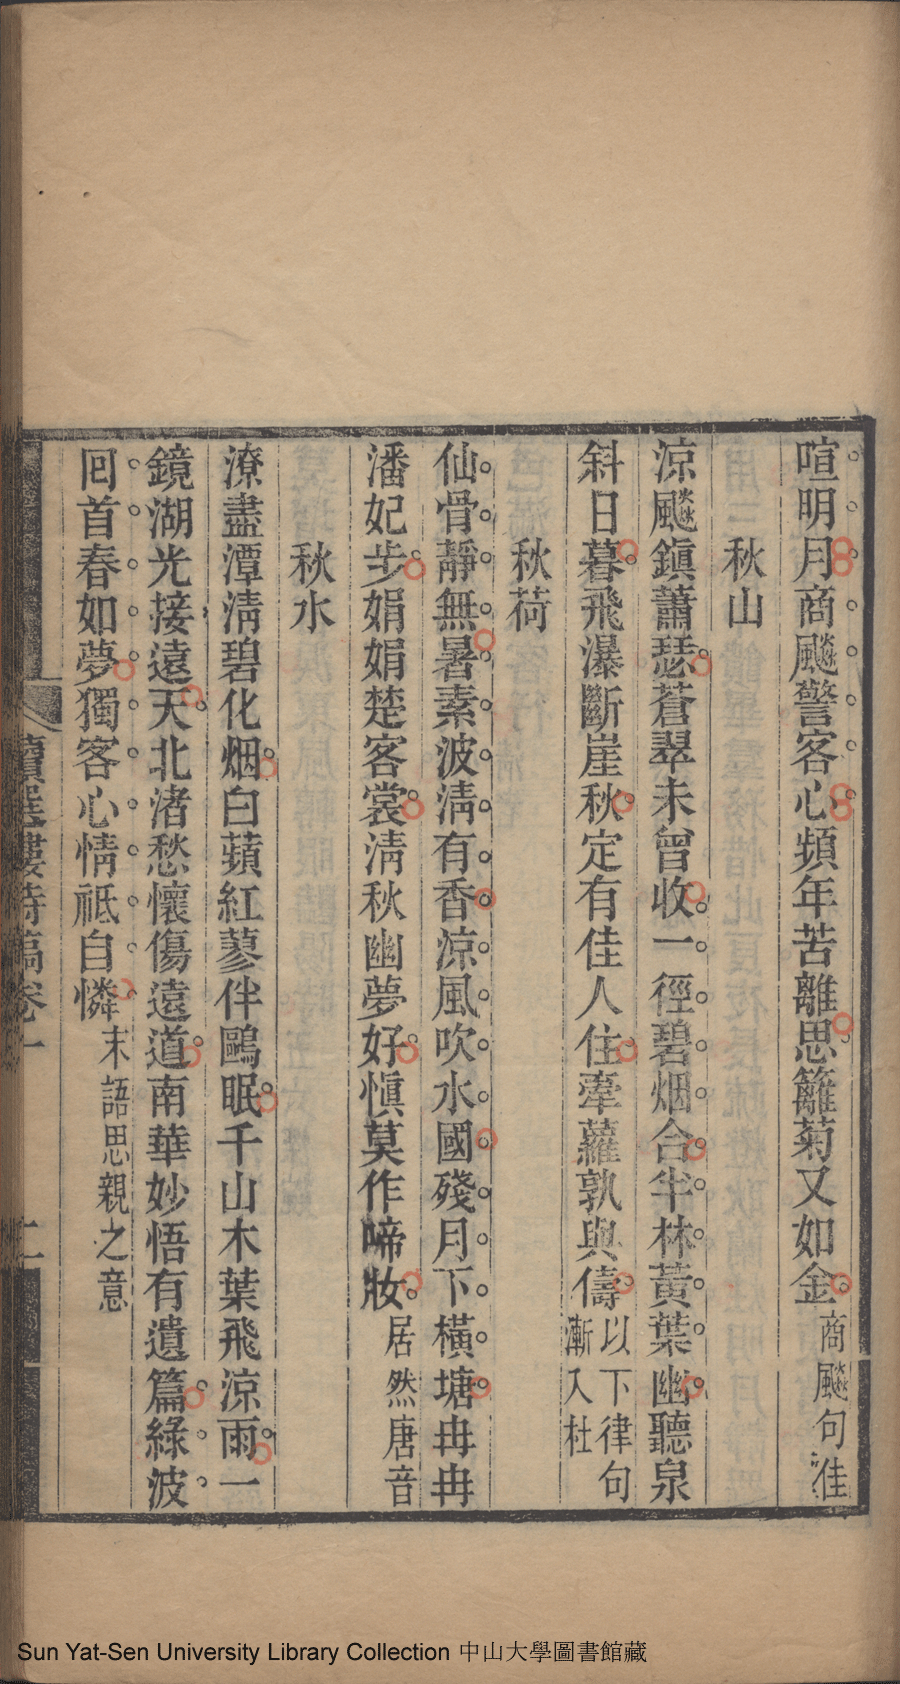 喧明月商飈警客心頻年苦離思籬菊又如金商飈句佳
秋山
涼飈鎮蕭瑟蒼翠未曾收一徑碧烟合半林黃葉幽聽泉
斜日暮飛瀑斷崖秋定有佳人住牽蘿孰與儔以下律句漸入杜
秋荷
仙骨靜無暑素波淸有香涼風吹水國殘月下橫塘冉冉
潘妃步娟娟楚客裳淸秋幽夢好愼莫作啼妝居然唐音
秋水
潦盡潭淸碧化烟白蘋紅蓼伴鷗眠千山木葉飛涼雨一
鏡湖光接遠天北渚愁懷傷遠道南華妙悟有遺篇綠波
回首春如夢獨客心情祗自憐末語思親之意
讀選樓詩稿卷一
Sun Yat-Sen University Library Collection 中山大學圖書館藏